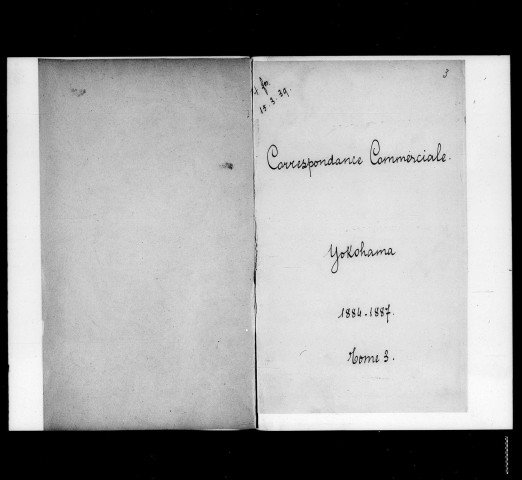 3
15.3.39.
Correspondance Commerciale.
Yokohama
1884-1887.
Tome 3.